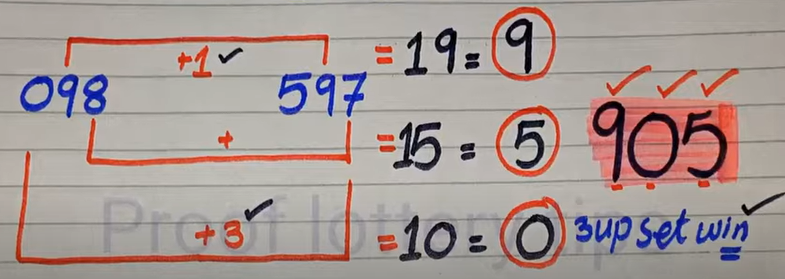 +1 ✓ = 19 = 9
098 597
+ = 15 = 5
905
+3 ✓ = 10 = 0
3up set win ✓
Proof lottery tips